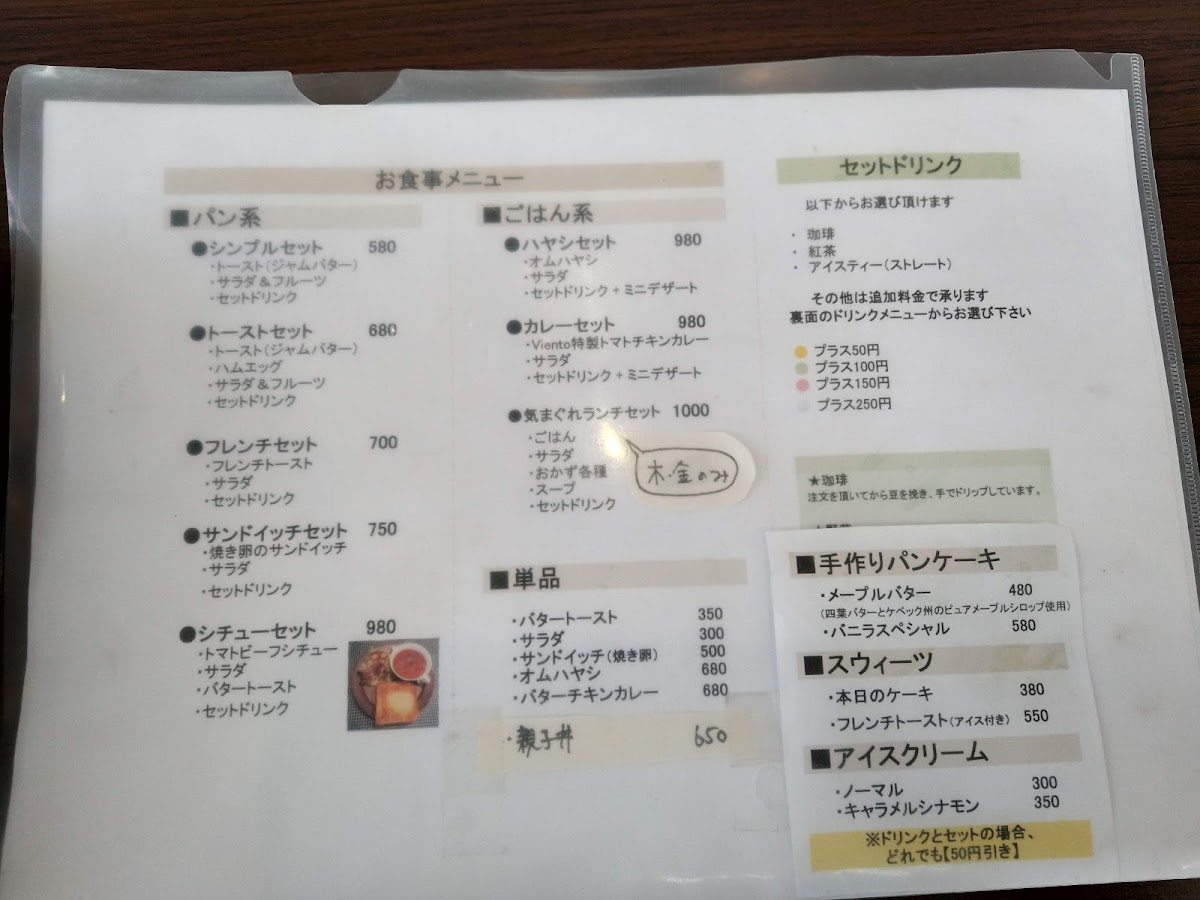 お食事メニュー
■パン系
●シンプルセット 580
・トースト(ジャムバター)
・サラダ＆フルーツ
・セットドリンク
●トーストセット 680
・トースト(ジャムバター)
・ハムエッグ
・サラダ＆フルーツ
・セットドリンク
●フレンチセット 700
・フレンチトースト
・サラダ
・セットドリンク
●サンドイッチセット 750
・焼き卵のサンドイッチ
・サラダ
・セットドリンク
●シチューセット 980
・トマトビーフシチュー
・サラダ
・バタートースト
・セットドリンク
■ごはん系
●ハヤシセット 980
・オムハヤシ
・サラダ
・セットドリンク + ミニデザート
●カレーセット 980
・Viento特製トマトチキンカレー
・サラダ
・セットドリンク + ミニデザート
●気まぐれランチセット 1000
・ごはん
・サラダ
・おかず各種
・スープ
・セットドリンク
木・金のみ
■単品
・バタートースト 350
・サラダ 300
・サンドイッチ(焼き卵) 500
・オムハヤシ 680
・バターチキンカレー 680
・親子丼 650
セットドリンク
以下からお選び頂けます
・ 珈琲
・ 紅茶
・ アイスティー(ストレート)
その他は追加料金で承ります
裏面のドリンクメニューからお選び下さい
プラス50円
プラス100円
プラス150円
プラス250円
★珈琲
注文を頂いてから豆を挽き、手でドリップしています。
■手作りパンケーキ
・メープルバター 480
(四葉バターとケベック州のピュアメープルシロップ使用)
・バニラスペシャル 580
■スウィーツ
・本日のケーキ 380
・フレンチトースト(アイス付き) 550
■アイスクリーム
・ノーマル 300
・キャラメルシナモン 350
※ドリンクとセットの場合、
どれでも【50円引き】